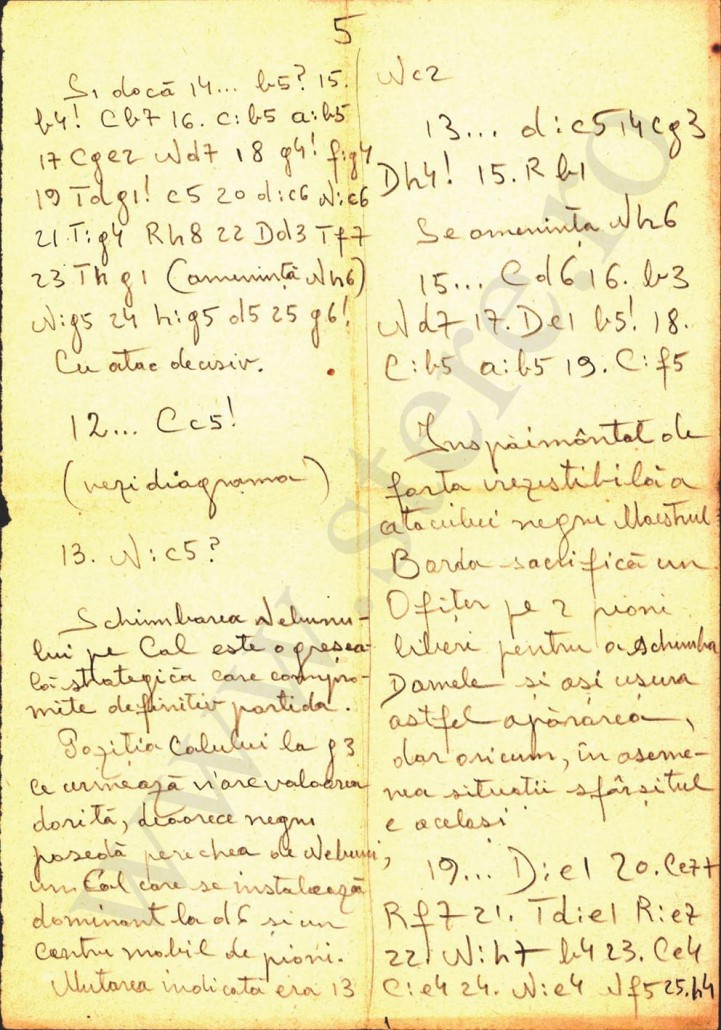 5
Și dacă 14... b5? 15.
b4! Cb7 16. c:b5 a:b5
17 Cge2 Nd7 18 g4! f:g4
19 Tdg1! c5 20 d:c6 N:c6
21 T:g4 Rh8 22 Dd3 Tf7
23 Th g1 (amenință Nh6)
N:g5 24 h:g5 d5 25 g6!
Cu atac decisiv.
12... Cc5!
(vezi diagrama)
13. N:c5?
Schimbarea Nebunu-
lui pe Cal este o greșea-
lă strategică care compro-
mite definitiv partida.
Poziția Calului la g3
ce urmează n'are valoarea
dorită, deoarece negru
posedă perechea de Nebuni,
un Cal care se instalează
dominant la d6 și un
centru mobil de pioni.
Mutarea indicată era 13
Nc2
13... d:c5 14 Cg3
Dh4! 15. Rb1
Se amenința Nh6
15... Cd6 16. b3
Nd7 17. De1 b5! 18.
C:b5 a:b5 19. C:f5
Înspăimântat de
forța irezistibilă a
atacului negru Maestrul
Borda sacrifică un
Ofițer pe 2 pioni
liberi pentru a schimba
Damele și ași ușura
astfel apărarea,
dar oricum, în aseme-
nea situații sfârșitul
e același
19... D:e1 20. Ce7+
Rf7 21. Td:e1 R:e7
22. N:h7 b4 23. Ce4
C:e4 24. N:e4 Nf5 25. h4
www.stere.ro